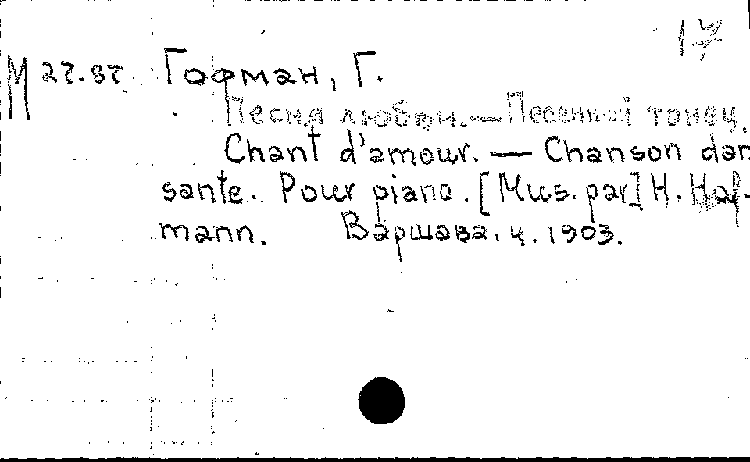 17
М 27.87 Гофман, Г.
Песня любви. — Песенный танец.
Chant d'amour. — Chanson dan
sante. Pour piano. [Mus. par] H. Hof-
mann. Варшава. ч. 1903.